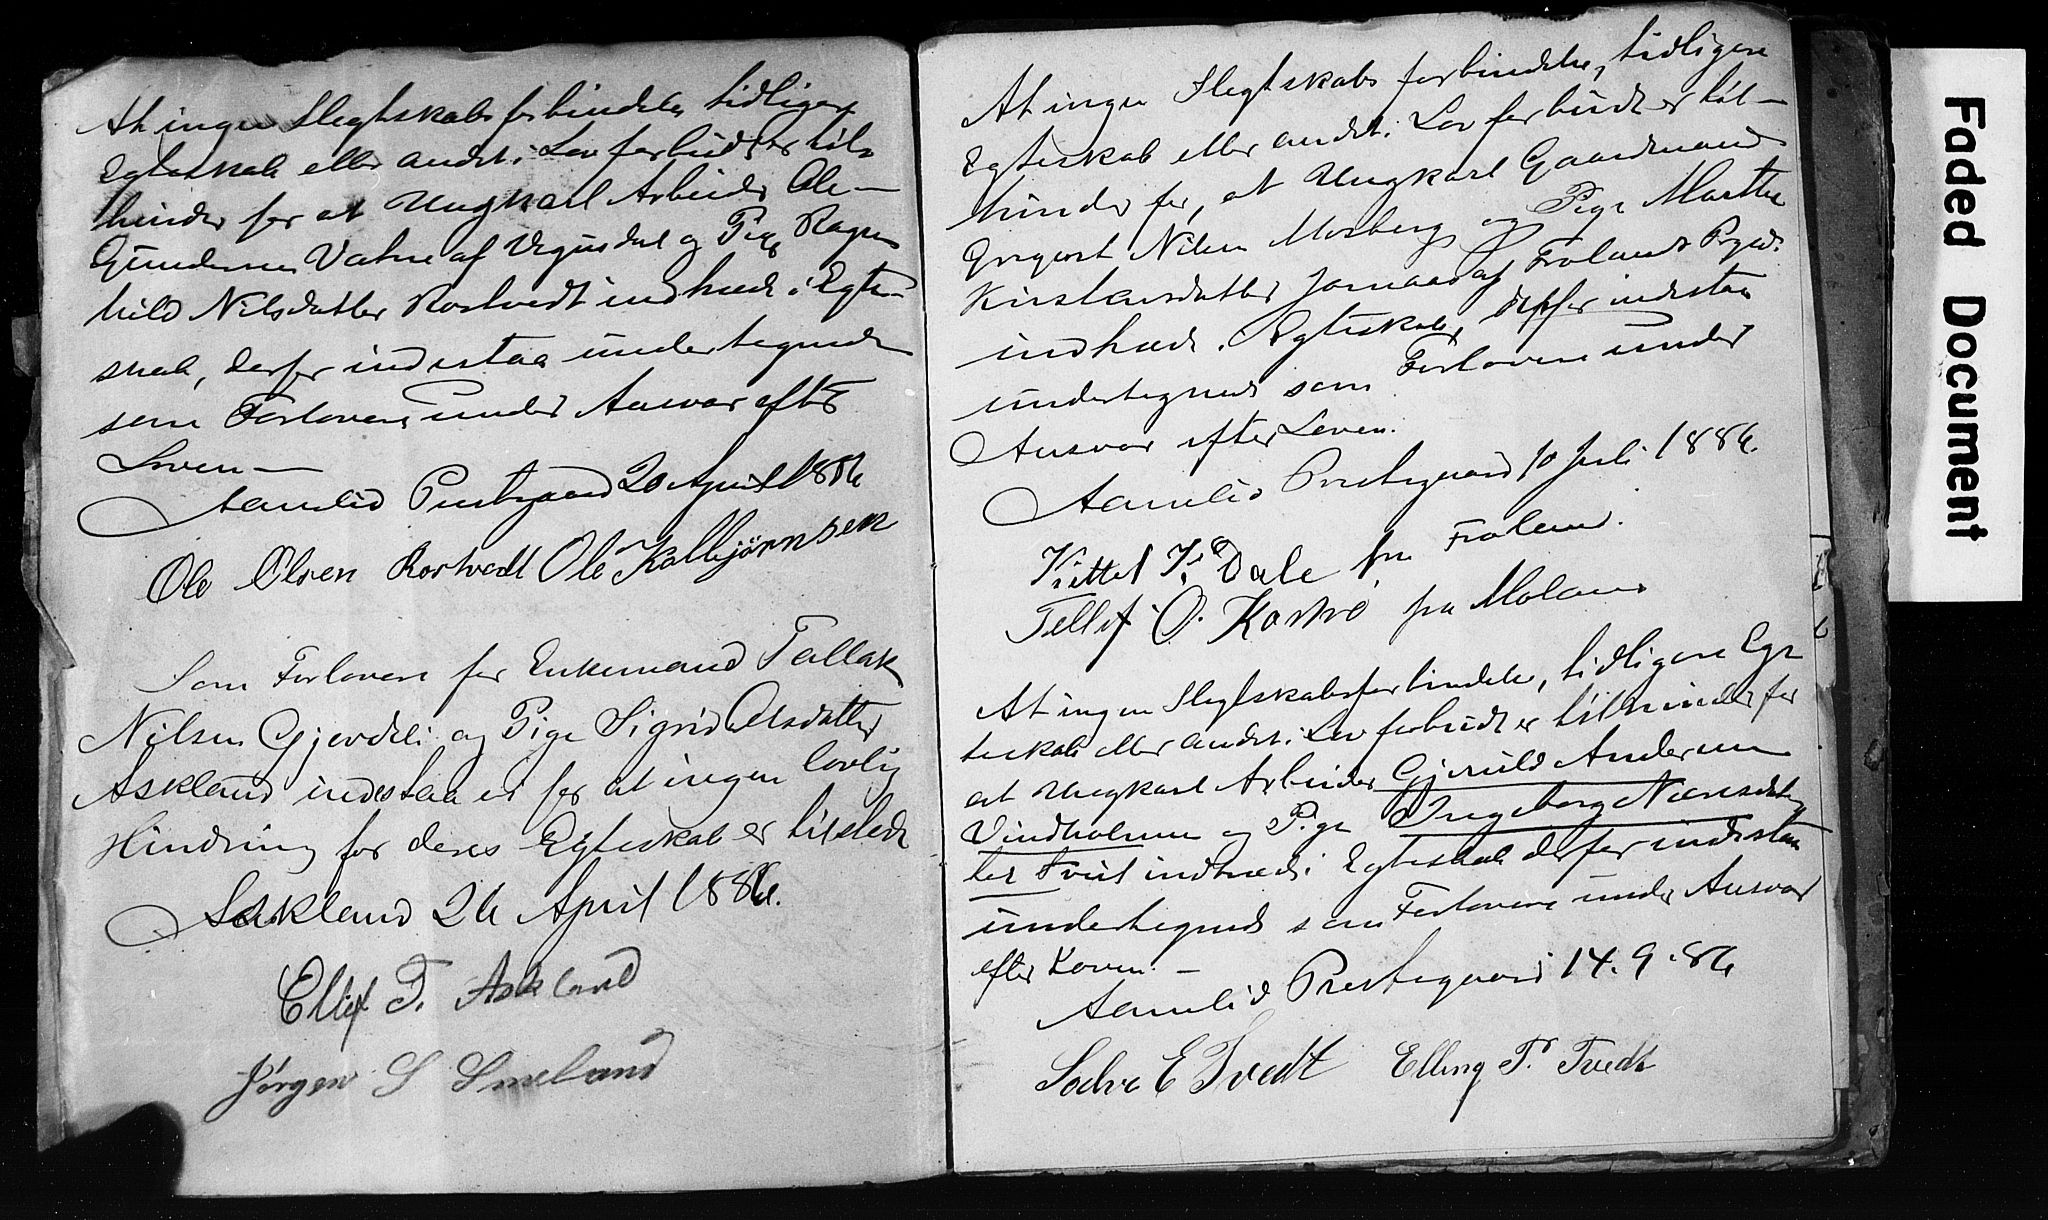 At ingen Slegtskabsforbindelse, tidligere
Egteskab eller andet i Lov forbudt er til
hinder for at Ungkarl Arbeider Ole
Gundersen Vatne af Vegusdal og Pige Ragn
hild Nilsdatter Rostvedt indtræde i Egte
skab, derfor indestaa undertegnede
som Forlovere under Ansvar efter
Loven —
Aamlid Prestegaard 20 April 1886
Ole Olsen Rostvedt Ole Kallbjörnsen
Som Forlovere for Enkemand Tallak
Nilsen Gjevdeli og Pige Sigrid Olsdatter
Askland indestaa vi for at ingen lovlig
Hindring for deres Egteskab er tilstede
Askland 26 April 1886.
Ellef T. Askland
Jørgen S Smeland
At ingen Slegtskabsforbindelse, tidligere
Egteskab eller andet i Lov forbudt er til-
hinder for, at Ungkarl Gaardmand
Gregert Nilsen Mosberg og Pige Marthe
Kirstensdatter Jomaas af Frolands Prgd.
indtræde i Egteskab, derfor indestaa
undertegnede som Forlovere under
Ansvar efter Loven.
Aamlid Prestegaard 10 Juli 1886.
Kittel K. Dale fra Froland.
Tellef O. Kastvé fra Moland
At ingen Slegtskabsforbindelse, tidligere Eg=
teskab eller andet i Lov forbudt er til hinder for
at Ungkarl Arbeider Gjeruld Andersen
Vindholmen og Pige Ingeborg Næresdat
ter Tveit indtræde i Egteskab derfor indestaa
undertegnede som Forlovere under Ansvar
efter Loven. —
Aamlid Prestegaard 14.9.86
Sadve E Tvedt Elling T. Tvedt
Faded Document